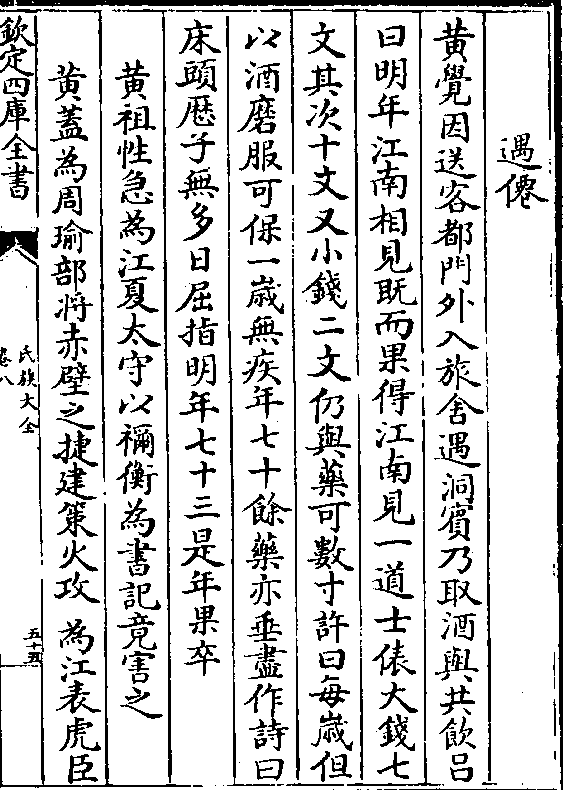 遇僊
黄覺因送客都門外入旅舍遇洞賓乃取酒與共飲吕
曰明年江南相見既而果得江南見一道士俵大錢七
文其次十文又小錢二文仍與藥可數寸許曰每歲但
以酒磨服可保一歲無疾年七十餘藥亦垂盡作詩曰
床頭厯子無多日屈指明年七十三是年果卒
黄祖性急為江夏太守以禰衡為書記竟害之
黄蓋為周瑜部將赤壁之捷建策火攻 為江表虎臣
欽定四庫全書
氏族大全
卷八
五十五